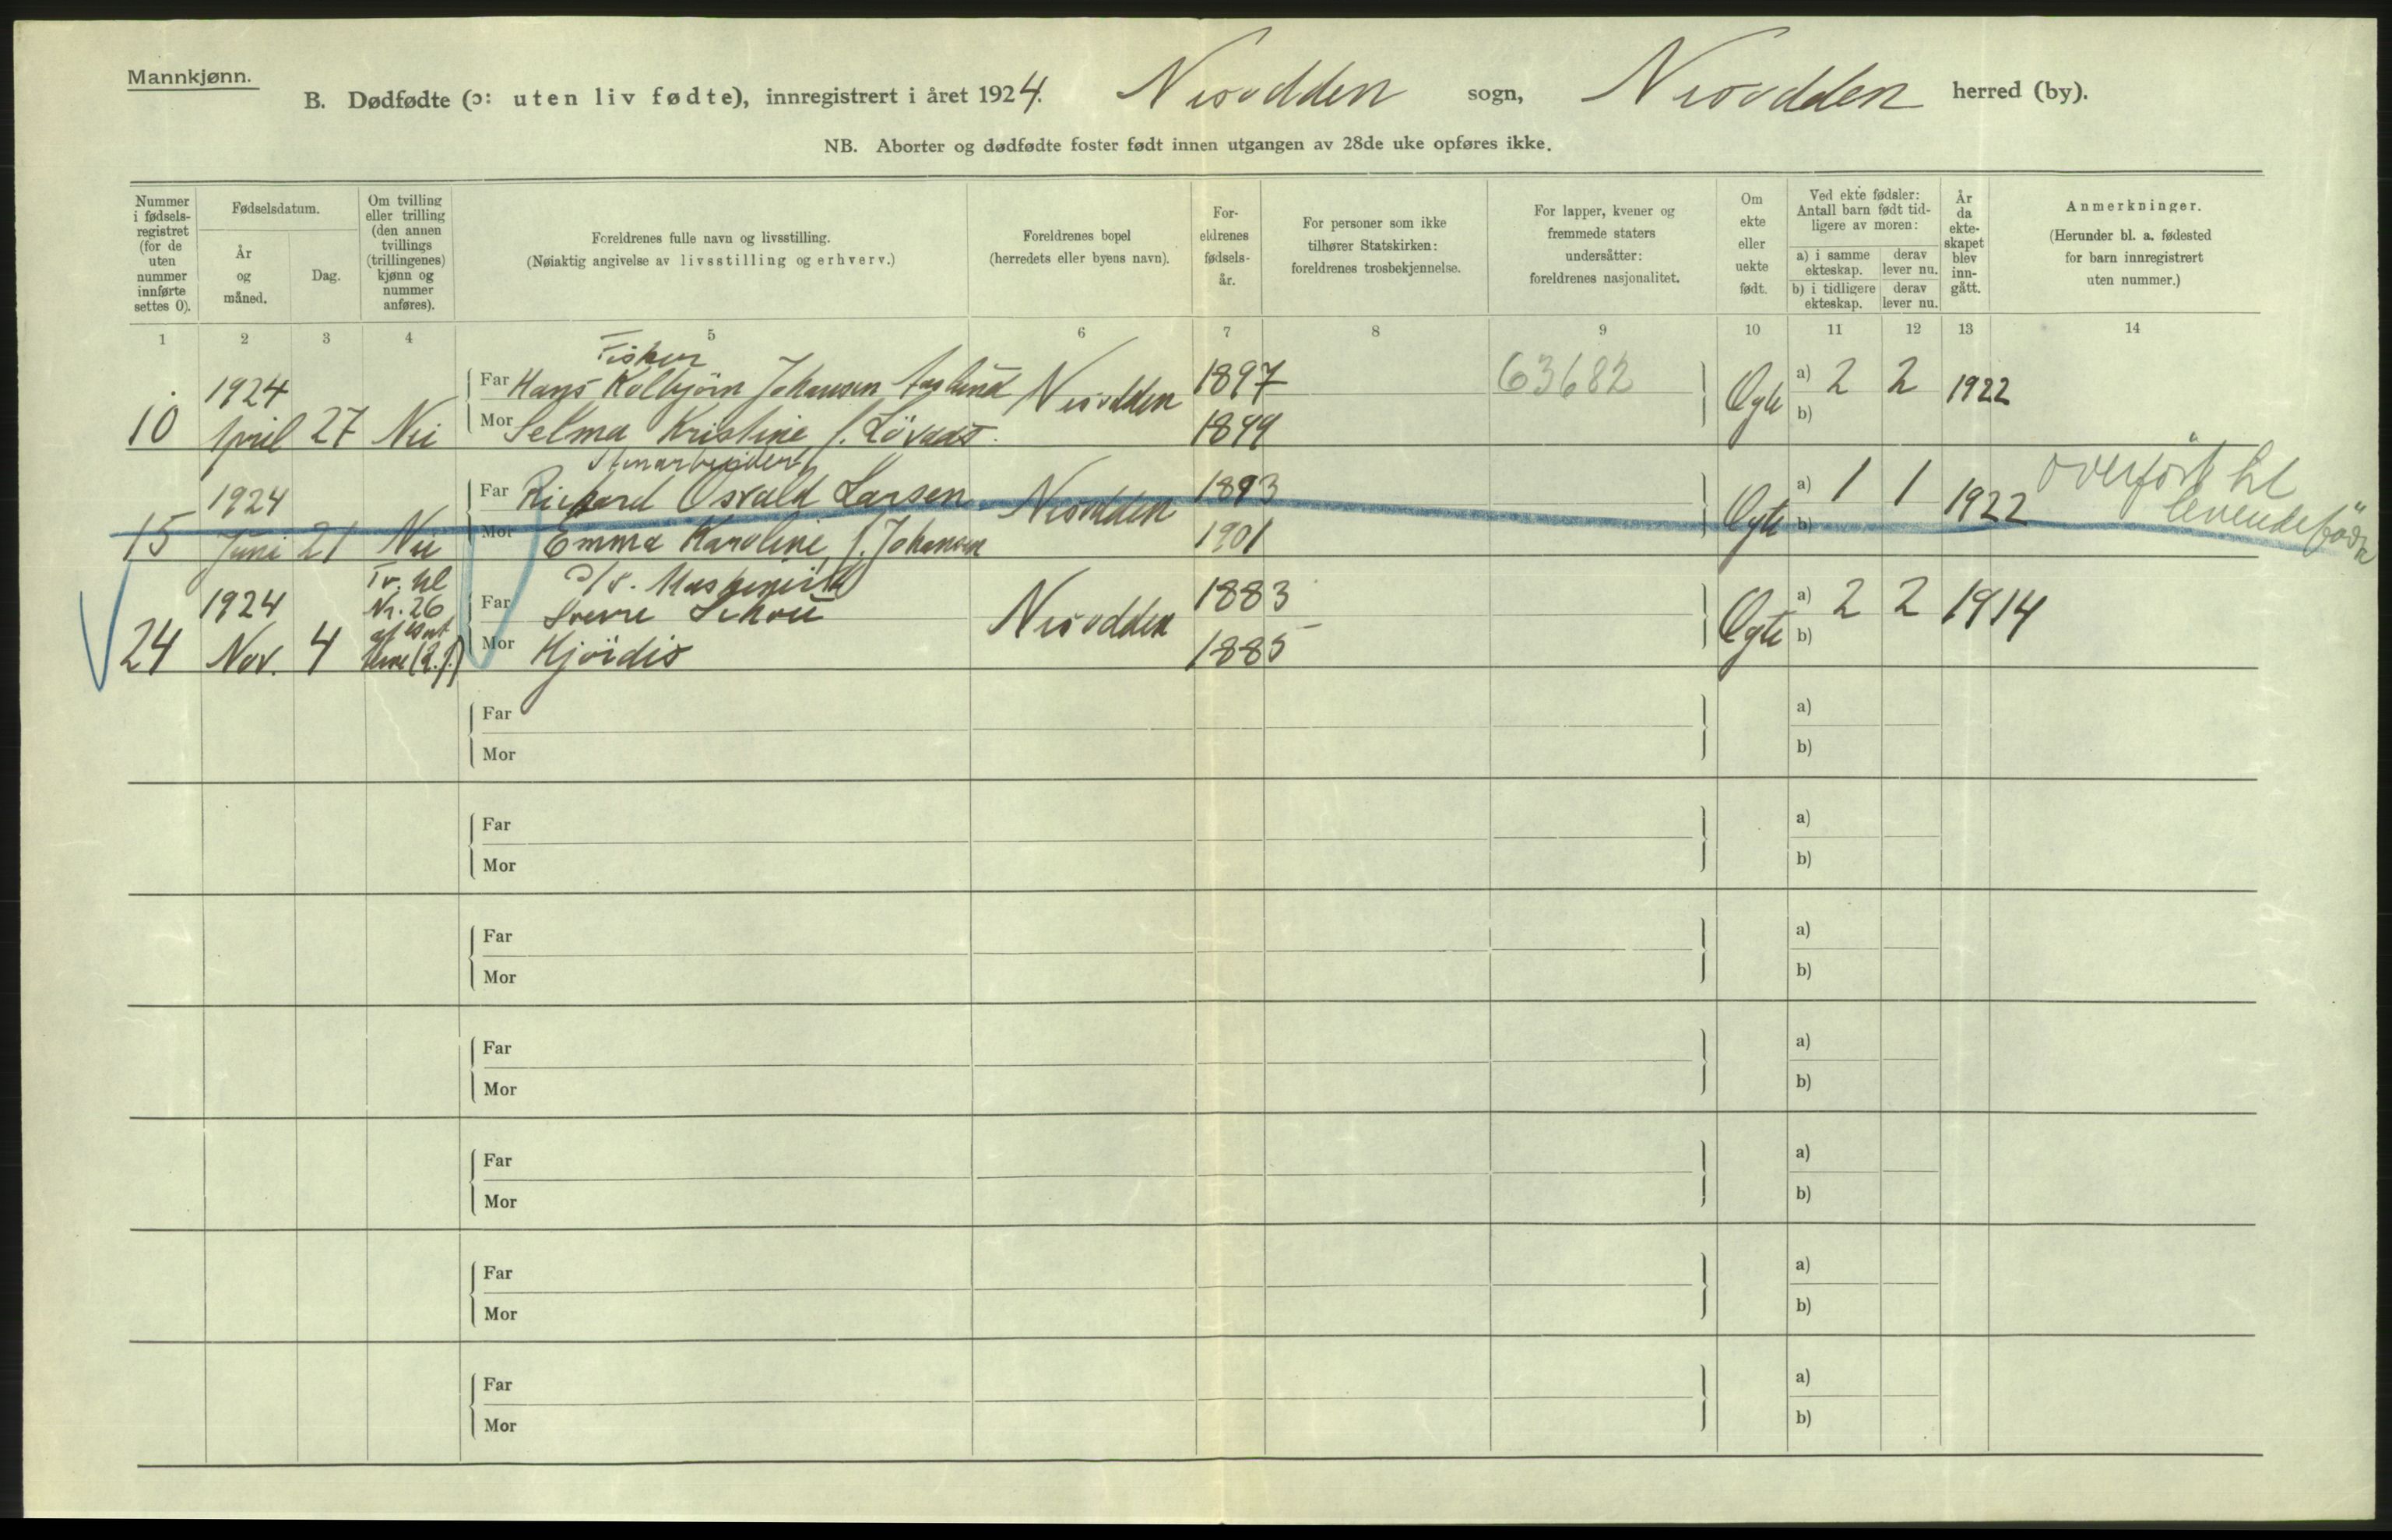 Mannkjønn.
B. Dødfødte (ɔ: uten liv fødte), innregistrert i året 1924. Nesodden sogn, Nesodden herred (by).
NB. Aborter og dødfødte foster født innen utgangen av 28de uke opføres ikke.
Nummer
i fødsels-
registret
(for de
uten
nummer
innførte
settes 0).
Fødselsdatum.
År
og
måned.
Dag.
Om tvilling
eller trilling
(den annen
tvillings
(trillingenes)
kjønn og
nummer
anføres).
Foreldrenes fulle navn og livsstilling.
(Nøiaktig angivelse av livsstilling og erhverv.)
Foreldrenes bopel
(herredets eller byens navn).
For-
eldrenes
fødsels-
år.
For personer som ikke
tilhører Statskirken:
foreldrenes trosbekjennelse.
For lapper, kvener og
fremmede staters
undersåtter:
foreldrenes nasjonalitet.
Om
ekte
eller
uekte
født.
Ved ekte fødsler:
Antall barn født tid-
ligere av moren:
a) i samme
ekteskap.
derav
lever nu.
b) i tidligere
ekteskap.
derav
lever nu.
År
da
ekte-
skapet
blev
inn-
gått.
Anmerkninger.
(Herunder bl. a. fødested
for barn innregistrert
uten nummer.)
1 2 3 4 5 6 7 8 9 10 11 12 13 14
Fisker
1924 Far Hans Kolbjörn Johansen Nesodden 1897 63682 Egte a) 2 2 1922
10 April 27 Nei Mor Selma Kristine f. 1899 b)
Stenarbeider
1924 Far Richard Osvald Larsen Nesodden 1893 Egte a) 1 1 1922 overført til
levendefødte
15 Juni 21 Nei Mor Emma Karoline f. Johansen 1901 b)
Tv. til
Nr. 26
1924 Far Schou Nesodden 1883 Egte a) 2 2 1914
24 Nov. 4 Mor Hjördis 1885 b)
Far a)
Mor b)
Far a)
Mor b)
Far a)
Mor b)
Far a)
Mor b)
Far a)
Mor b)
Far a)
Mor b)
Far a)
Mor b)